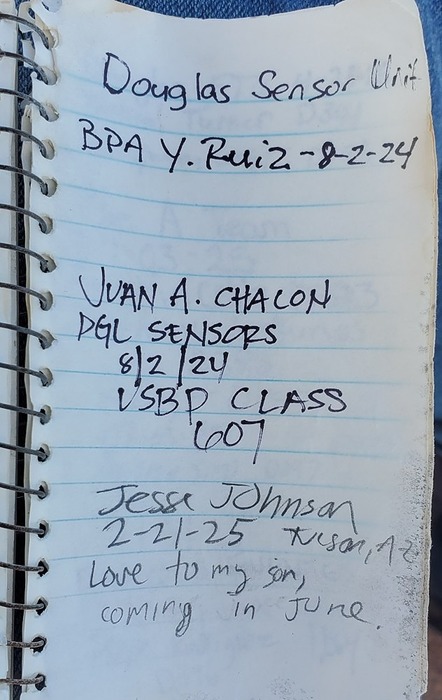 Douglas Sensor Unit
BPA Y. Ruiz - 8-2-24
JUAN A. CHACON
DGL SENSORS
8/2/24
USBP CLASS
607
Jesse Johnson
2-21-25 Tucson, AZ
Love to my son,
coming in June.